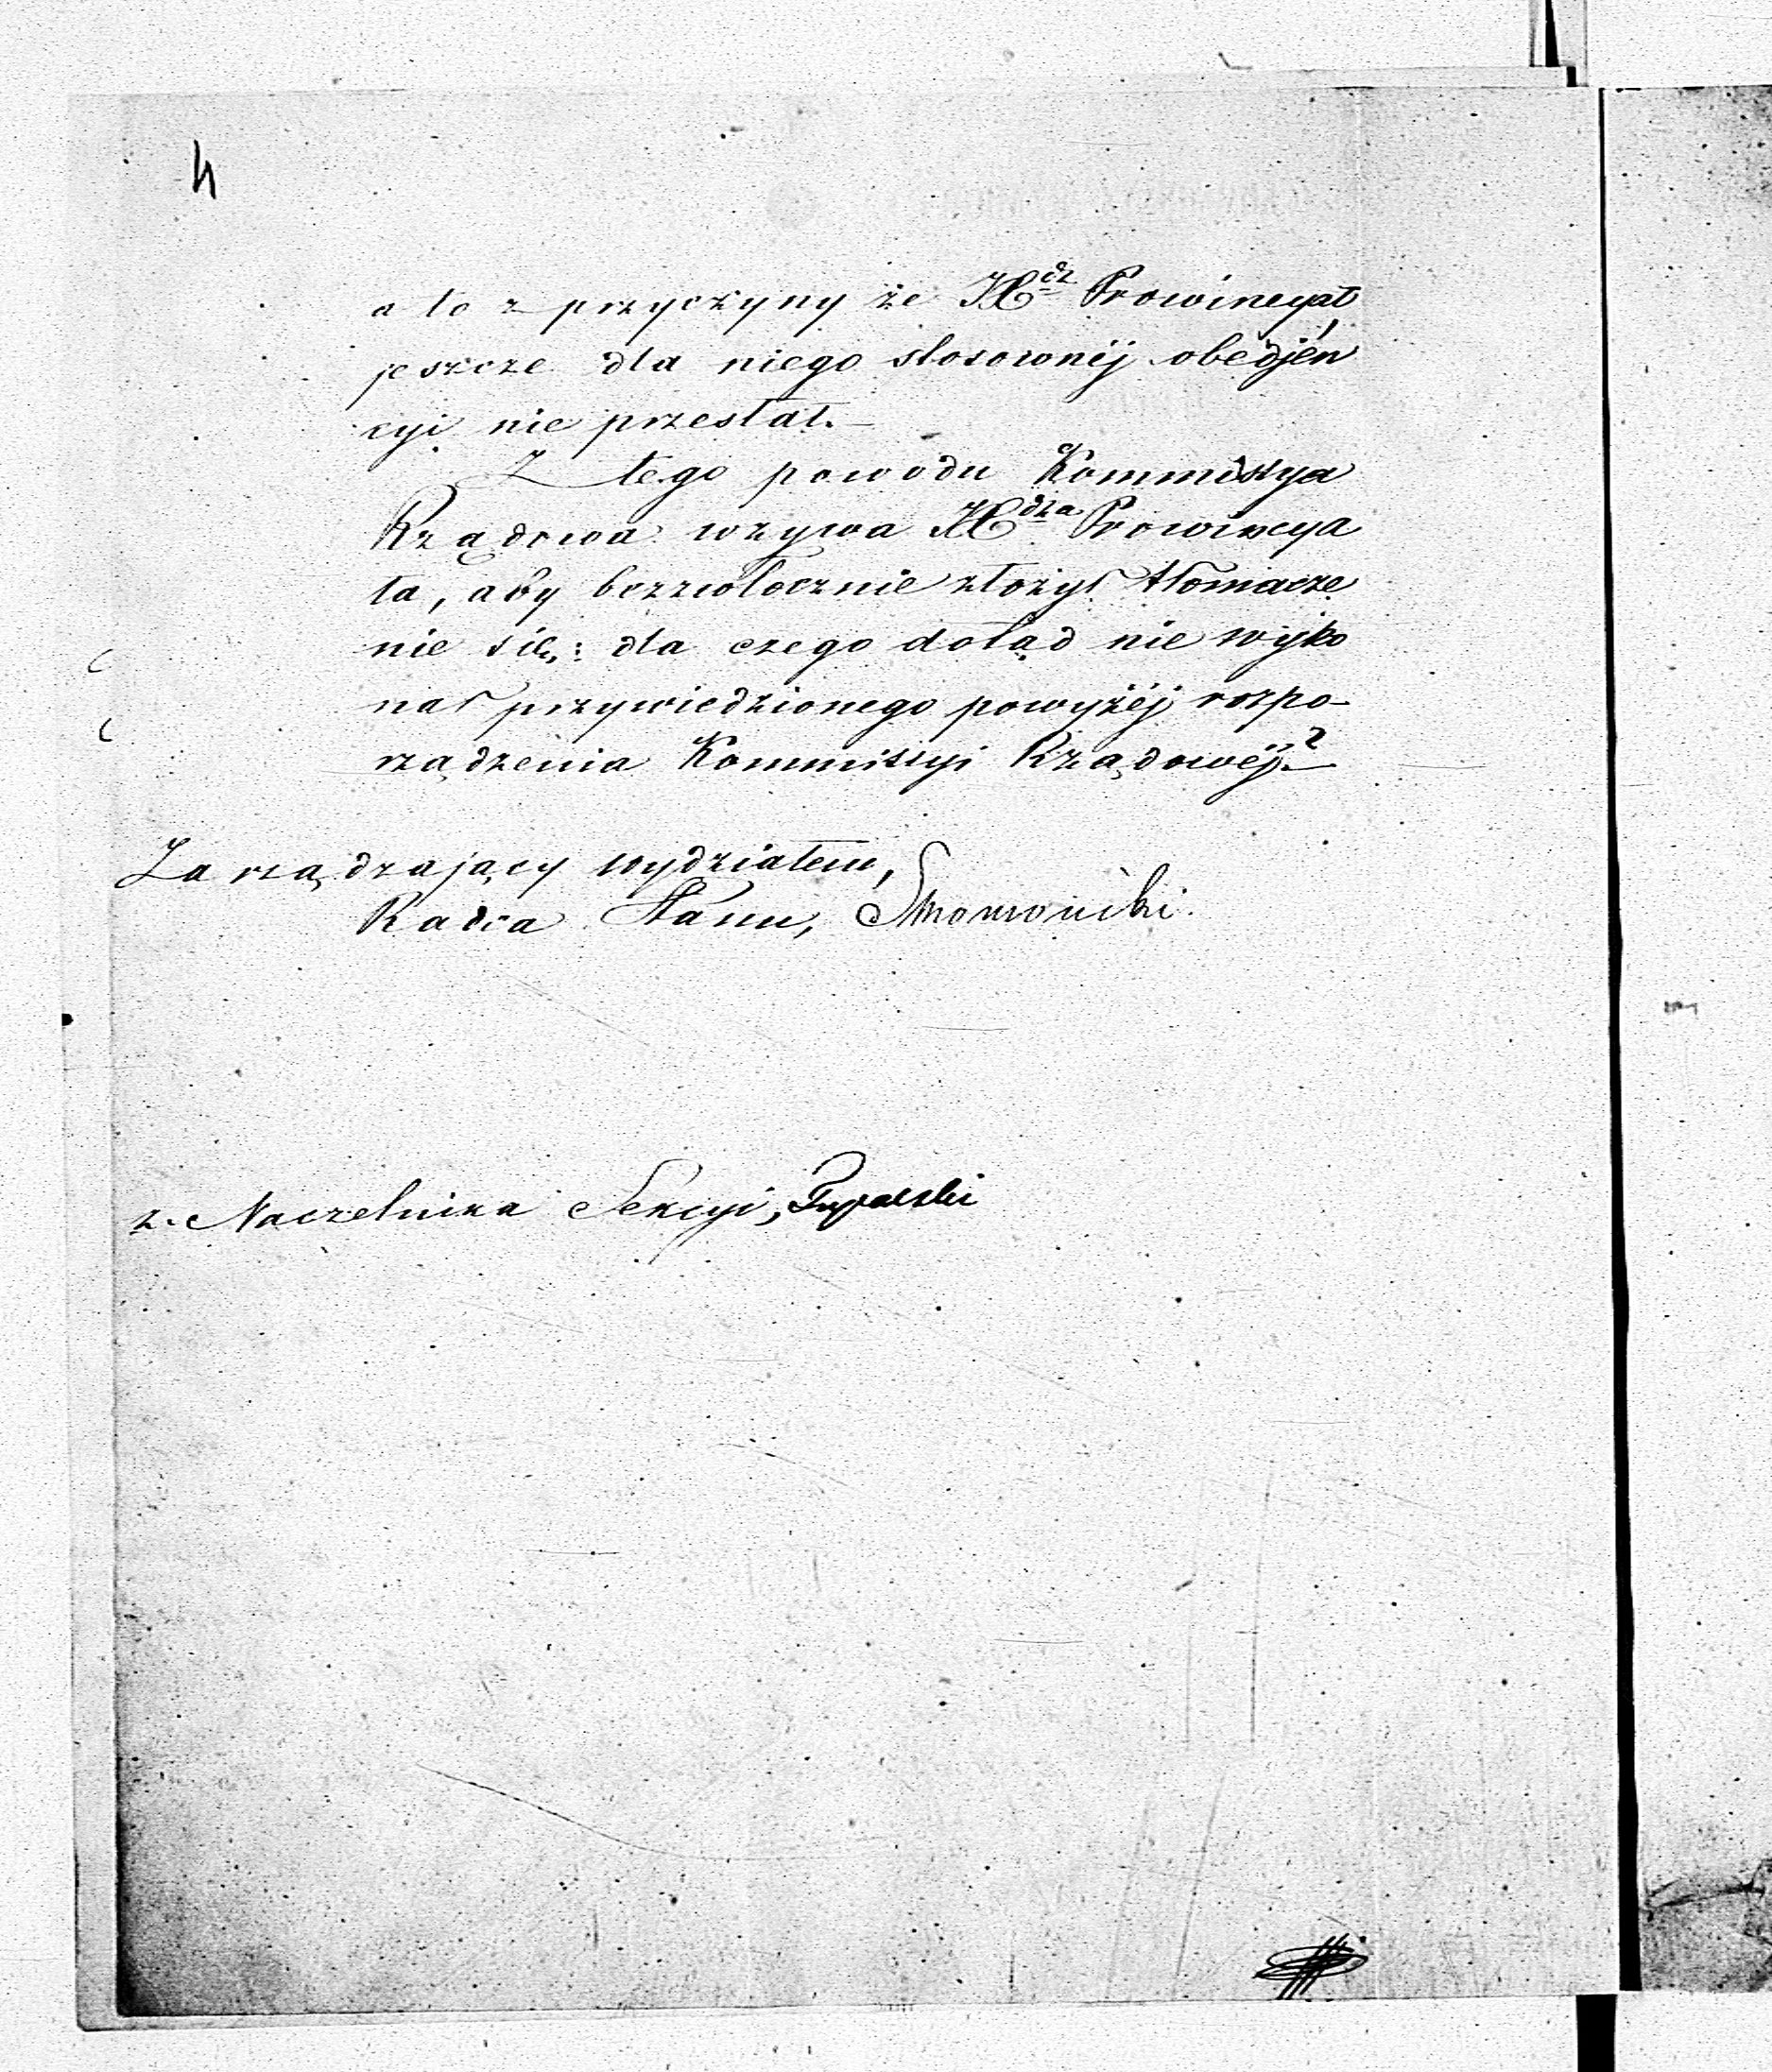 4
a to z przyczyny że X<sup>dz</sup> Prowincyał
jeszcze dla niego stosownéj obedjén
cyi nie przesłał.—
Z tego powodu Kommissya
Rządowa wzywa X<sup>dza</sup> Prowincya
ła, aby bezzwłocznie złożył tłomacze
nie się: dla czego dotąd nie wyko
nał przywiedzionego powyżéj rozpo-
rządzenia Kommissyi Rządowéj?—
Zarządzający wydziałem,
Radca Stanu,
z. Naczelnika Sekcyi,